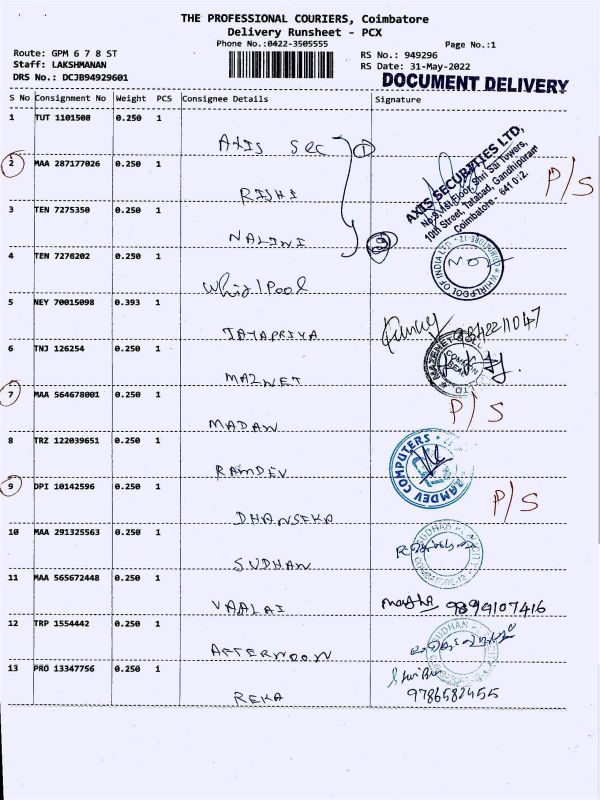 THE PROFESSIONAL COURIERS, Coimbatore
Delivery Runsheet - PCX
Phone No.:0422-3505555
Page No.:1
Route: GPM 6 7 8 ST
RS No.: 949296
Staff: LAKSHMANAN
RS Date: 31-May-2022
DRS No.: DCJB94929601
DOCUMENT DELIVERY
S No Consignment No Weight PCS Consignee Details Signature
1 TUT 1101508 0.250 1
AXIS SEC 1
AXIS SECURITIES LTD,
No.9,1st Floor, Shri Sai Towers,
10th Street, Tatabad, Gandhipuram
Coimbatore - 641 012.
2 MAA 287177026 0.250 1
RISHI P/S
3 TEN 7275350 0.250 1
NALINI
4 TEN 7276202 0.250 1
Whirlpool
WHIRLPOOL OF INDIA LTD
5 NEY 70015098 0.393 1
JAYAPRIYA
6 TNJ 126254 0.250 1
MAZNET
7 MAA 564678001 0.250 1
MADAN P/S
8 TRZ 122039651 0.250 1
RAMDEV
RAMDEV COMPUTERS
9 DPI 10142596 0.250 1
DHANSEKA P/S
10 MAA 291325563 0.250 1
SUDHAN
SUDHAN
11 MAA 565672448 0.250 1
VAALAI
12 TRP 1554442 0.250 1
AFTERNOON
SUDHAN
13 PRO 13347756 0.250 1
REKA 9786582455